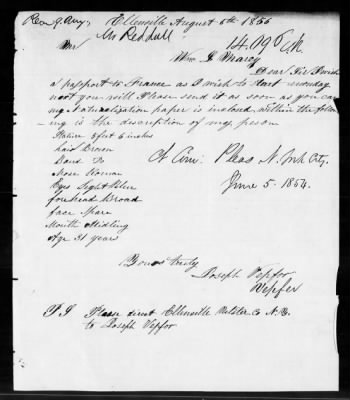 Rec 9. Aug. Ellenville August 6th 1856
Mr Reddall 14.096
Wm L Marcy
Dear Sir I wish
a passport to France as I wish to start monday
next you will Please send it as soon as you can
my naturalization paper is inclosed within the follow-
ing is the description of my person
Stature 5 feet 6 inches
hair Brown
Do
Nose Roman
Eyes Light Blue
forehead Broad
face Spare
Mouth Midling
Age 31 years
Ct Com: Pleas N. York City.
June 5. 1854.
Yours truly
Joseph Vepfor
Wepfer
P S Please direct Ellensville Ulster Co N.Y.
to Joseph Vepfor